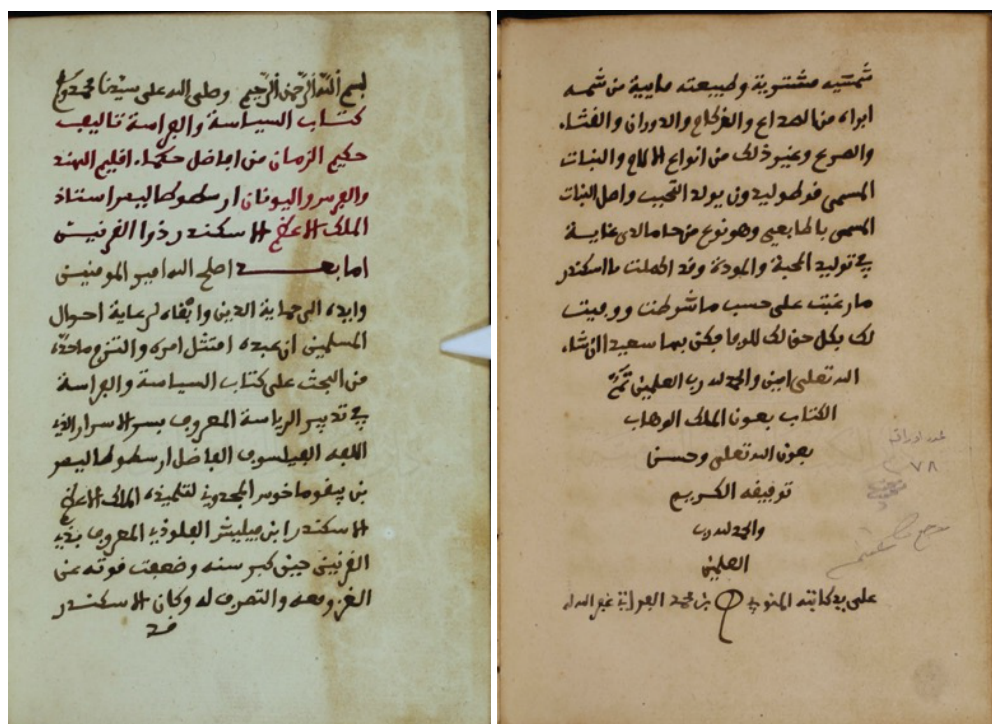 بسم الله الرحمن الرحيم وصلى الله على سيدنا محمد وءاله
كتاب السياسة والفراسة تاليف
حكيم الزمان من افاضل حكماء افليم الهند
والفرس واليونان ارسطوطاليس استاذ
الملك الاعظم الاسكندر ذوا الفرنين
اما بعد اصلح الله امير المومنين
وايده الى حماية الدين وابفاه لرعاية احوال
المسلمين ان عبده امتثل امره والتزم ماحده
من البحث على كتاب السياسة والفراسة
في تدبير الرياسة المعروف بسر الاسرار الذي
الفه الفيلسوف الفاضل ارسطوطاليس
بن نيفوماخوس المجدوني لتلميذه الملك الاعظم
الاسكندر ابن فيليبش الفلوذي المعروف بذي
الفرنين حين كبر سنه وضعفت فوته عن
الغزو معه والتصرف له وكان الاسكندر
فد
شمسيه مشترية وطبيعته مايية من شمه
ابراه من الصداع والزكام والدوران والفشاء
والصرع وغير ذلك من انواع الالام والنبات
المسمى فوطوليدون يولد التحبب واصل النبات
المسمى باطابعي وهو نوع من حاما لاى غاية
في توليد المحبة والمودة وفد اكملت يا اسكندر
ما رغبت على حسب ما شرطت ووفيت
لك بكل حق لك للوفا فكن بها سعيدا ان شاء
الله تعلى امين والحمد لله رب العلمين تم
الكتاب بعون الملك الوهاب
بعون الله تعلى وحسن
توفيفه الكريم
والحمد لله رب
العلمين
على يد كاتبه بن محمد غفر الله له
عدد اوراقه
٧٨